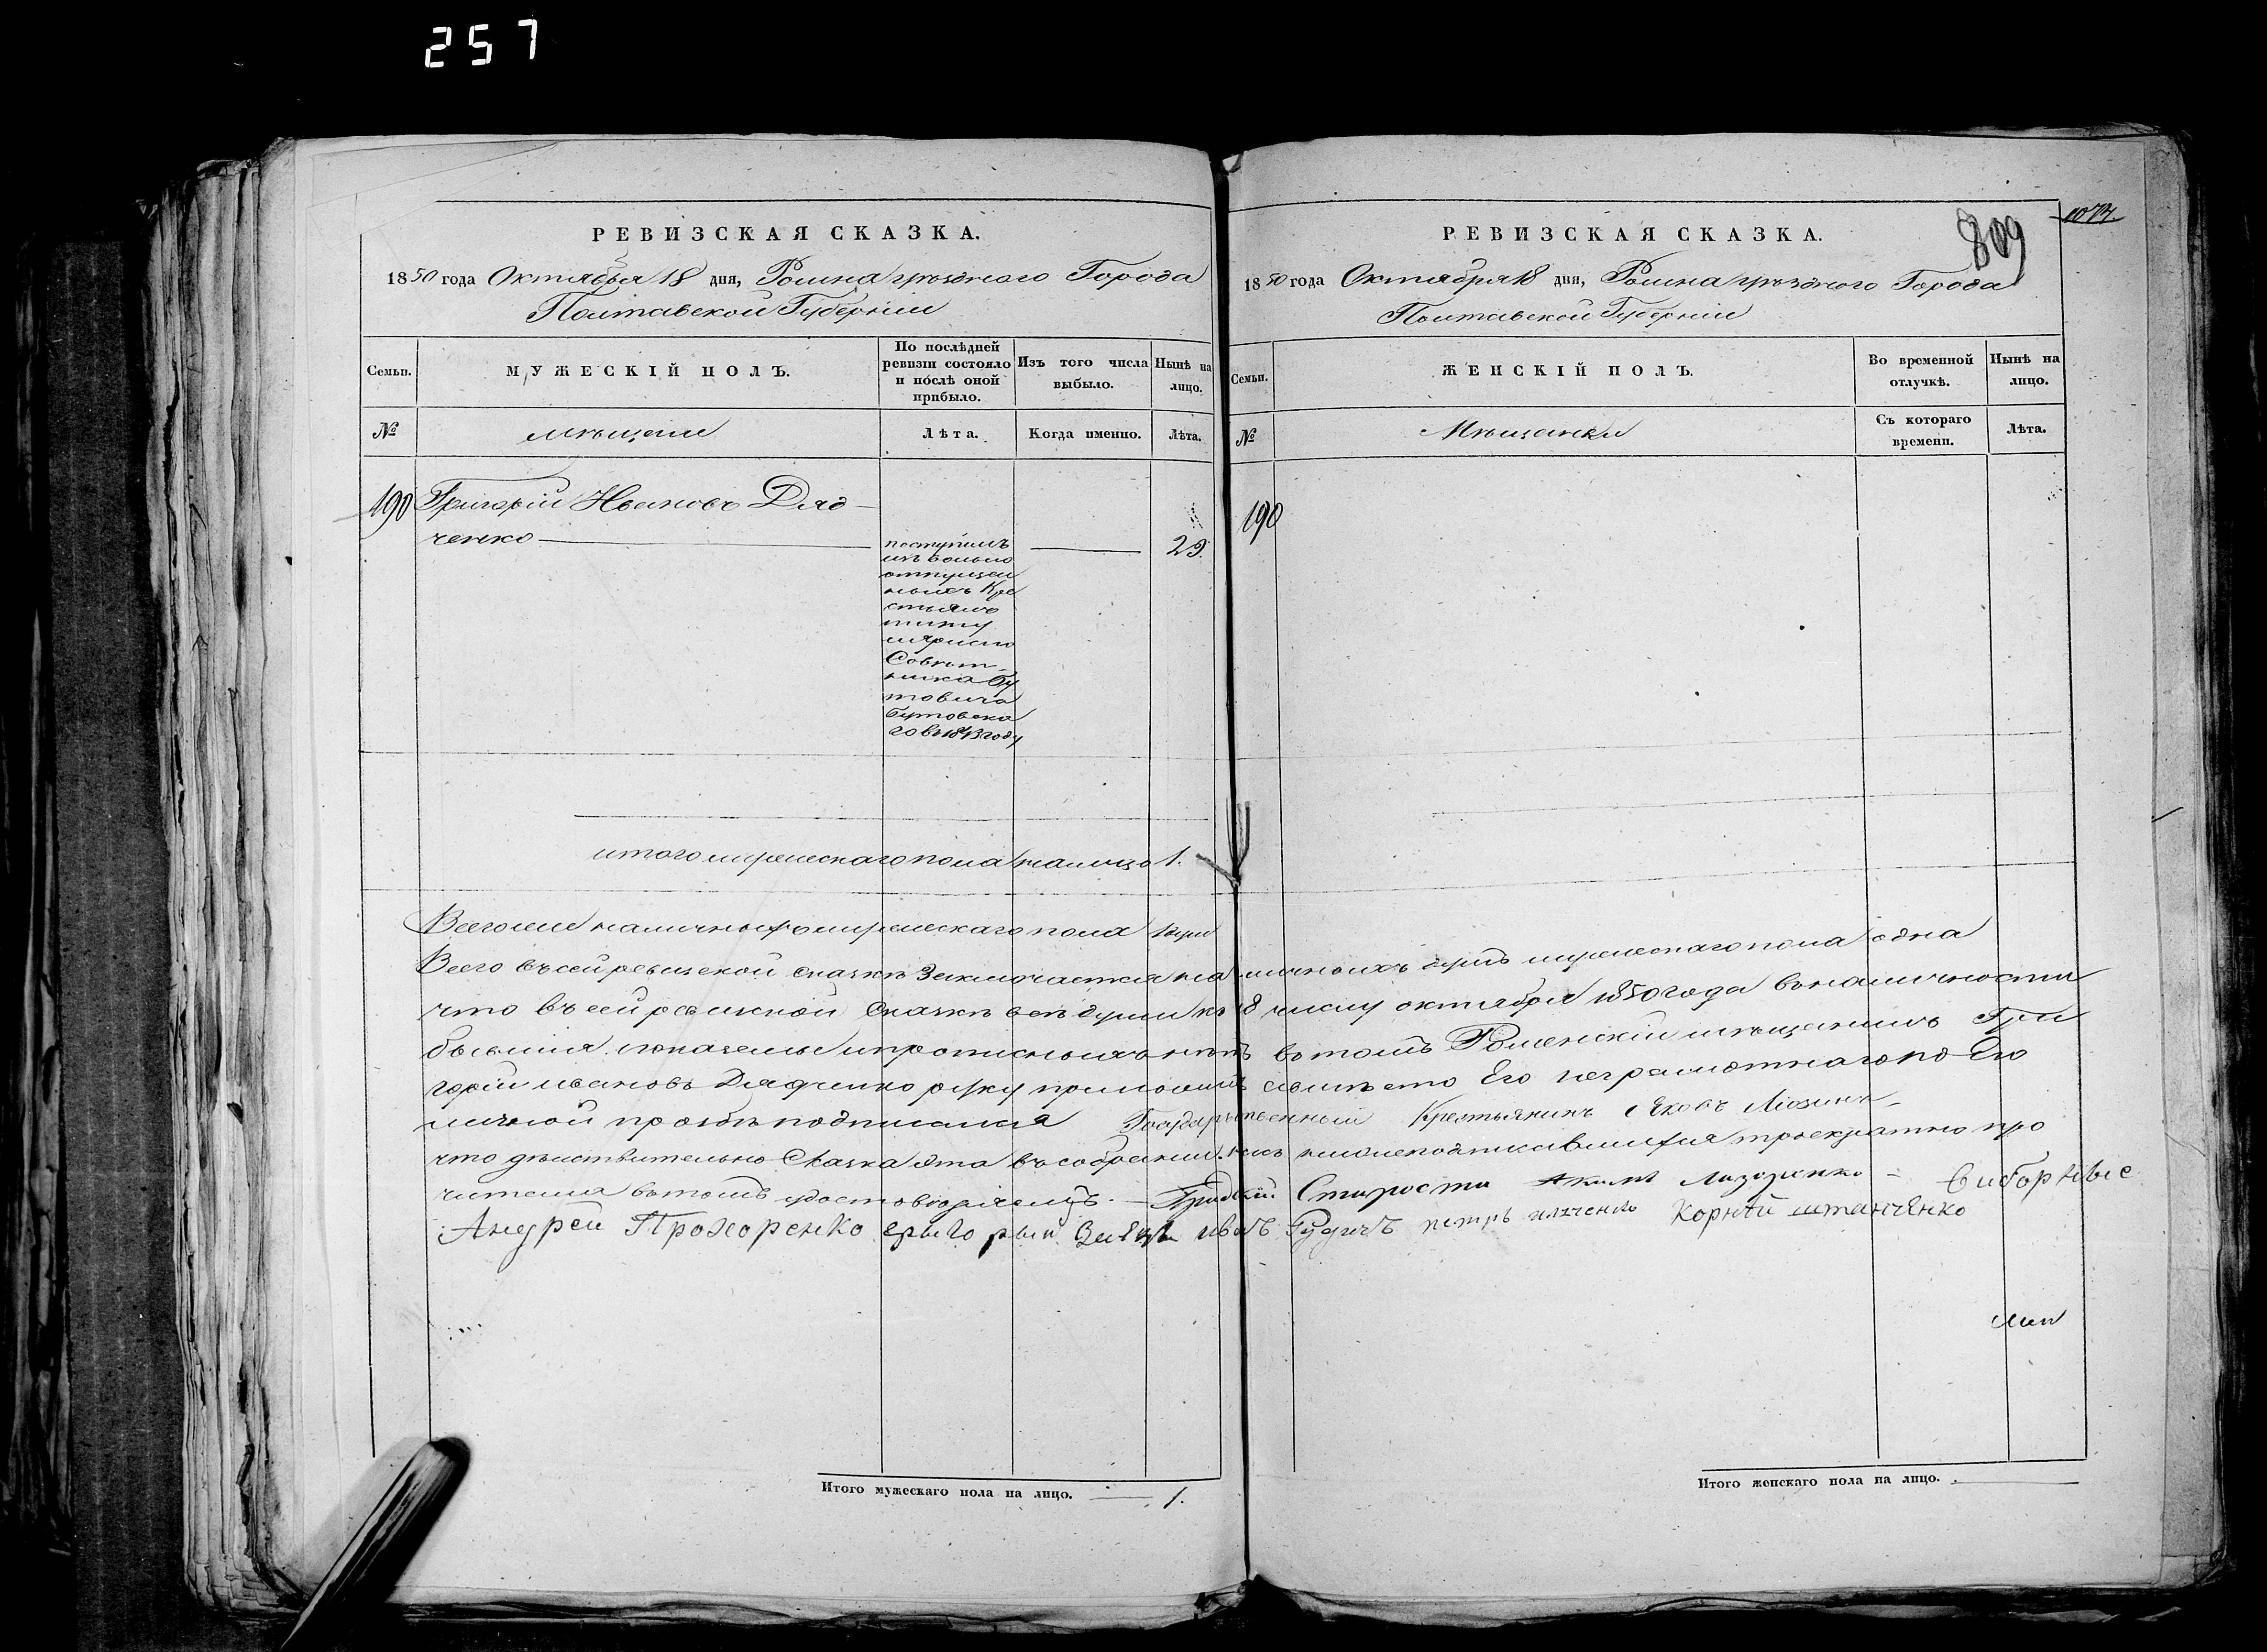 257
РЕВИЗСКАЯ СКАЗКА.
1850 года Октября 18 дня, Ромна уѣзднаго Города
Полтавской Губерніи
Семьи.
МУЖЕСКІЙ ПОЛЪ.
По послѣдней ревизіи состояло и послѣ оной прибыло.
Изъ того числа выбыло.
Нынѣ на лицо.
№
мѣщане
Лѣта.
Когда именно.
Лѣта.
190
Григорій Ивановъ Дяд-
ченко
поступилъ
изъ вольно
отпущен
ныхъ Кре
стьянъ
титу
лярнаго
Совѣт
ника Бу
товича
Бутовска
го въ 1843 году
29.
итого мужескаго пола налицо 1.
РЕВИЗСКАЯ СКАЗКА.
809
1850 года Октября 18 дня, Ромна уѣзднаго Города
Полтавской Губерніи
Семьи.
ЖЕНСКІЙ ПОЛЪ.
Во временной отлучкѣ.
Нынѣ на лицо.
№
Мѣщанки
Съ котораго времени.
Лѣта.
190
Всего же наличныхъ мужескаго пола 1 душ
Всего въ сей ревизской сказкѣ Заключается наличныхъ душъ мужескаго пола одна
что въ сей ревизской Сказкѣ всѣ души къ 18 числу октября 1850 года въ наличности
бывшія показаны и прописныхъ нѣтъ въ томъ Роменскій мѣщанинъ Гри
горій Ивановъ Дядченко руку приложилъ а вмѣсто Его неграмотнаго по Его
личной прозбѣ подписался Государственный Крестьянинъ Яковъ
что дѣйствительно Сказка эта въ собраніи насъ нижеподписавшихся троекратно про
читана въ томъ удостовѣряемъ. — Градскій Староста Акимъ Лазаренко — Виборные
Андрей Прохоренко Грыгорый иванъ Рудичъ петръ Корнѣй штанченко
Итого мужескаго пола на лицо. 1.
Итого женскаго пола на лицо.